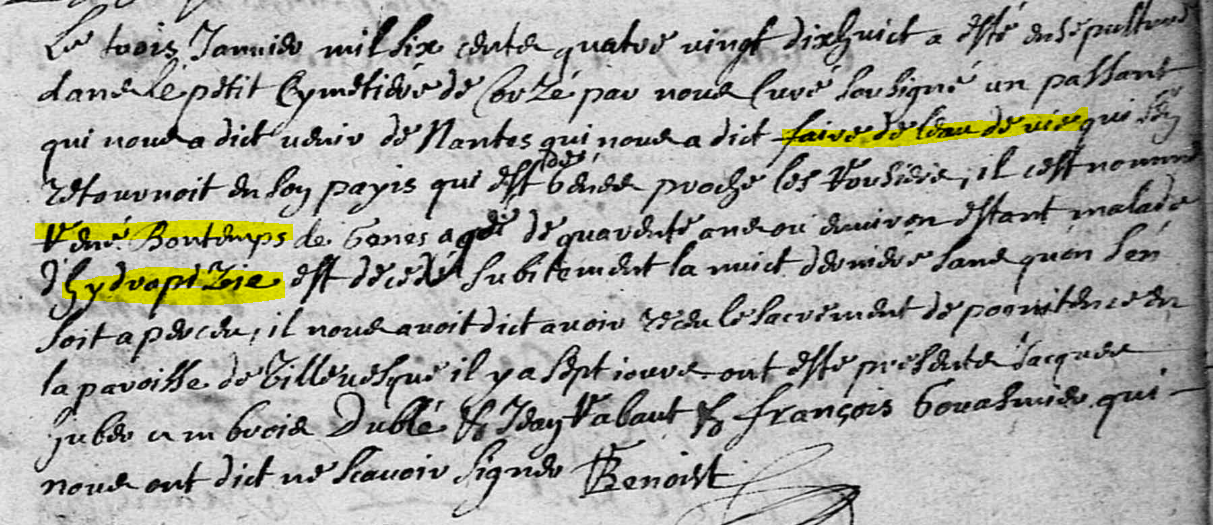 Le trois Janvier mil six cents quatre vingt dixhuict a esté ensépulturé
dans le pétit Cymétiére de Corzé par nous Curé soussigné un passant
qui nous a dict venir de Nantes qui nous a dict faire de leau de vie qui s'en
retournoit en son payis qui est de Genes proche les Rousiers, il cest nommé
René Bontemps de Genes agé de quarente ans ou environ estant malade
d'hydropizie est décedé subitement la nuict derniere sans qu'on s'en
soit apercu, il nous avoit dict avoir receu le sacrement de poenitence en
la paroisse de Villevesque il y a sept jours ont esté presents Jacques
ambrois Dublé & Jean Rabaut & françois qui
nous ont dict ne scavoir signer Benoist